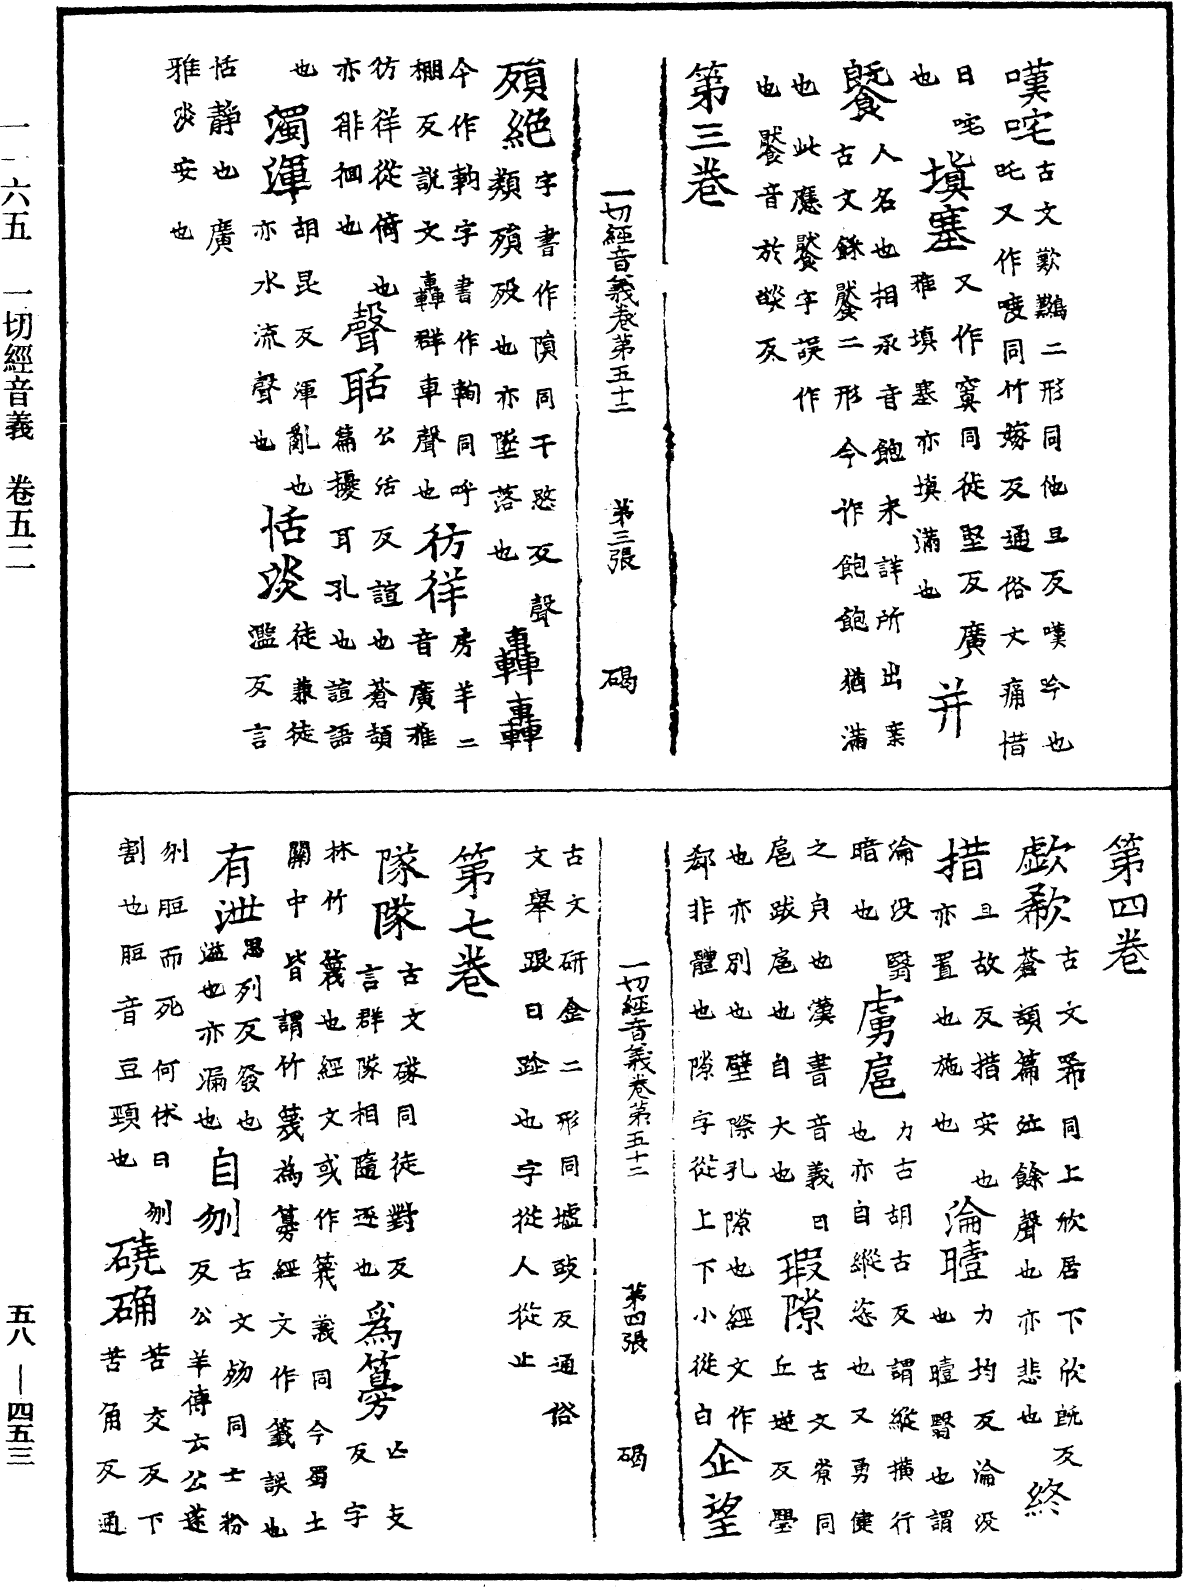 一一六五　一切經音義　卷五二
五八—四五三
嘆咤古文歎𪄿二形同他旦反嘆吟也
吒又作㖠同竹嫁反通俗文痛惜
曰咤也
填塞又作窴同徒堅反廣
雅填塞亦填滿也
并
饕人名也相承音飽未詳所出案
古文餘䬽二形今作飽飽猶滿
也此應饜字誤作
也饜音於焰反
第三卷
一切經音義卷第五十二　第三張　碣
殞絕字書作隕同于愍反聲
類殞歿也亦墜落也
轟轟
今作軥字書作軥同呼
棚反說文轟群車聲也
彷徉房羊二
音廣雅
彷徉從倚也
亦徘徊也
聲聒公活反諠也蒼頡
篇擾耳孔也諠語
也
濁渾胡昆反渾亂也
亦水流聲也
恬淡徒兼徒
濫反言
恬靜也廣
雅淡安也
第四卷
歔欷古文㕧同上欣居下欣既反
蒼頡篇泣餘聲也亦悲也
終
措且故反措安也
亦置也施也
淪曀力均反淪沒
也曀翳也謂
淪沒翳
暗也
虜扈力古胡古反謂縱橫行
也亦自縱恣也又勇健
之貞也漢書音義曰
扈跋扈也自大也
瑕隙古文𡭴同
丘逆反璺
也亦別也壁際孔隙也經文作
郄非體也隙字從上下小從白
企望
一切經音義卷第五十二　第四張　碣
古文研𠈮二形同墟豉反通俗
文舉踉曰跂也字從人從止
第七卷
隊隊古文㒸同徒對反
言群隊相隨逐也
為䈍亡支
反字
林竹篾也經文或作篾義同今蜀土
關中皆謂竹篾為䈍經文作籤誤也
有泄思列反發也
溢也亦漏也
自刎古文歾同士粉
反公羊傳云公遂
刎脰而死何休曰刎
割也脰音豆頸也
磽确苦交反下
苦角反通